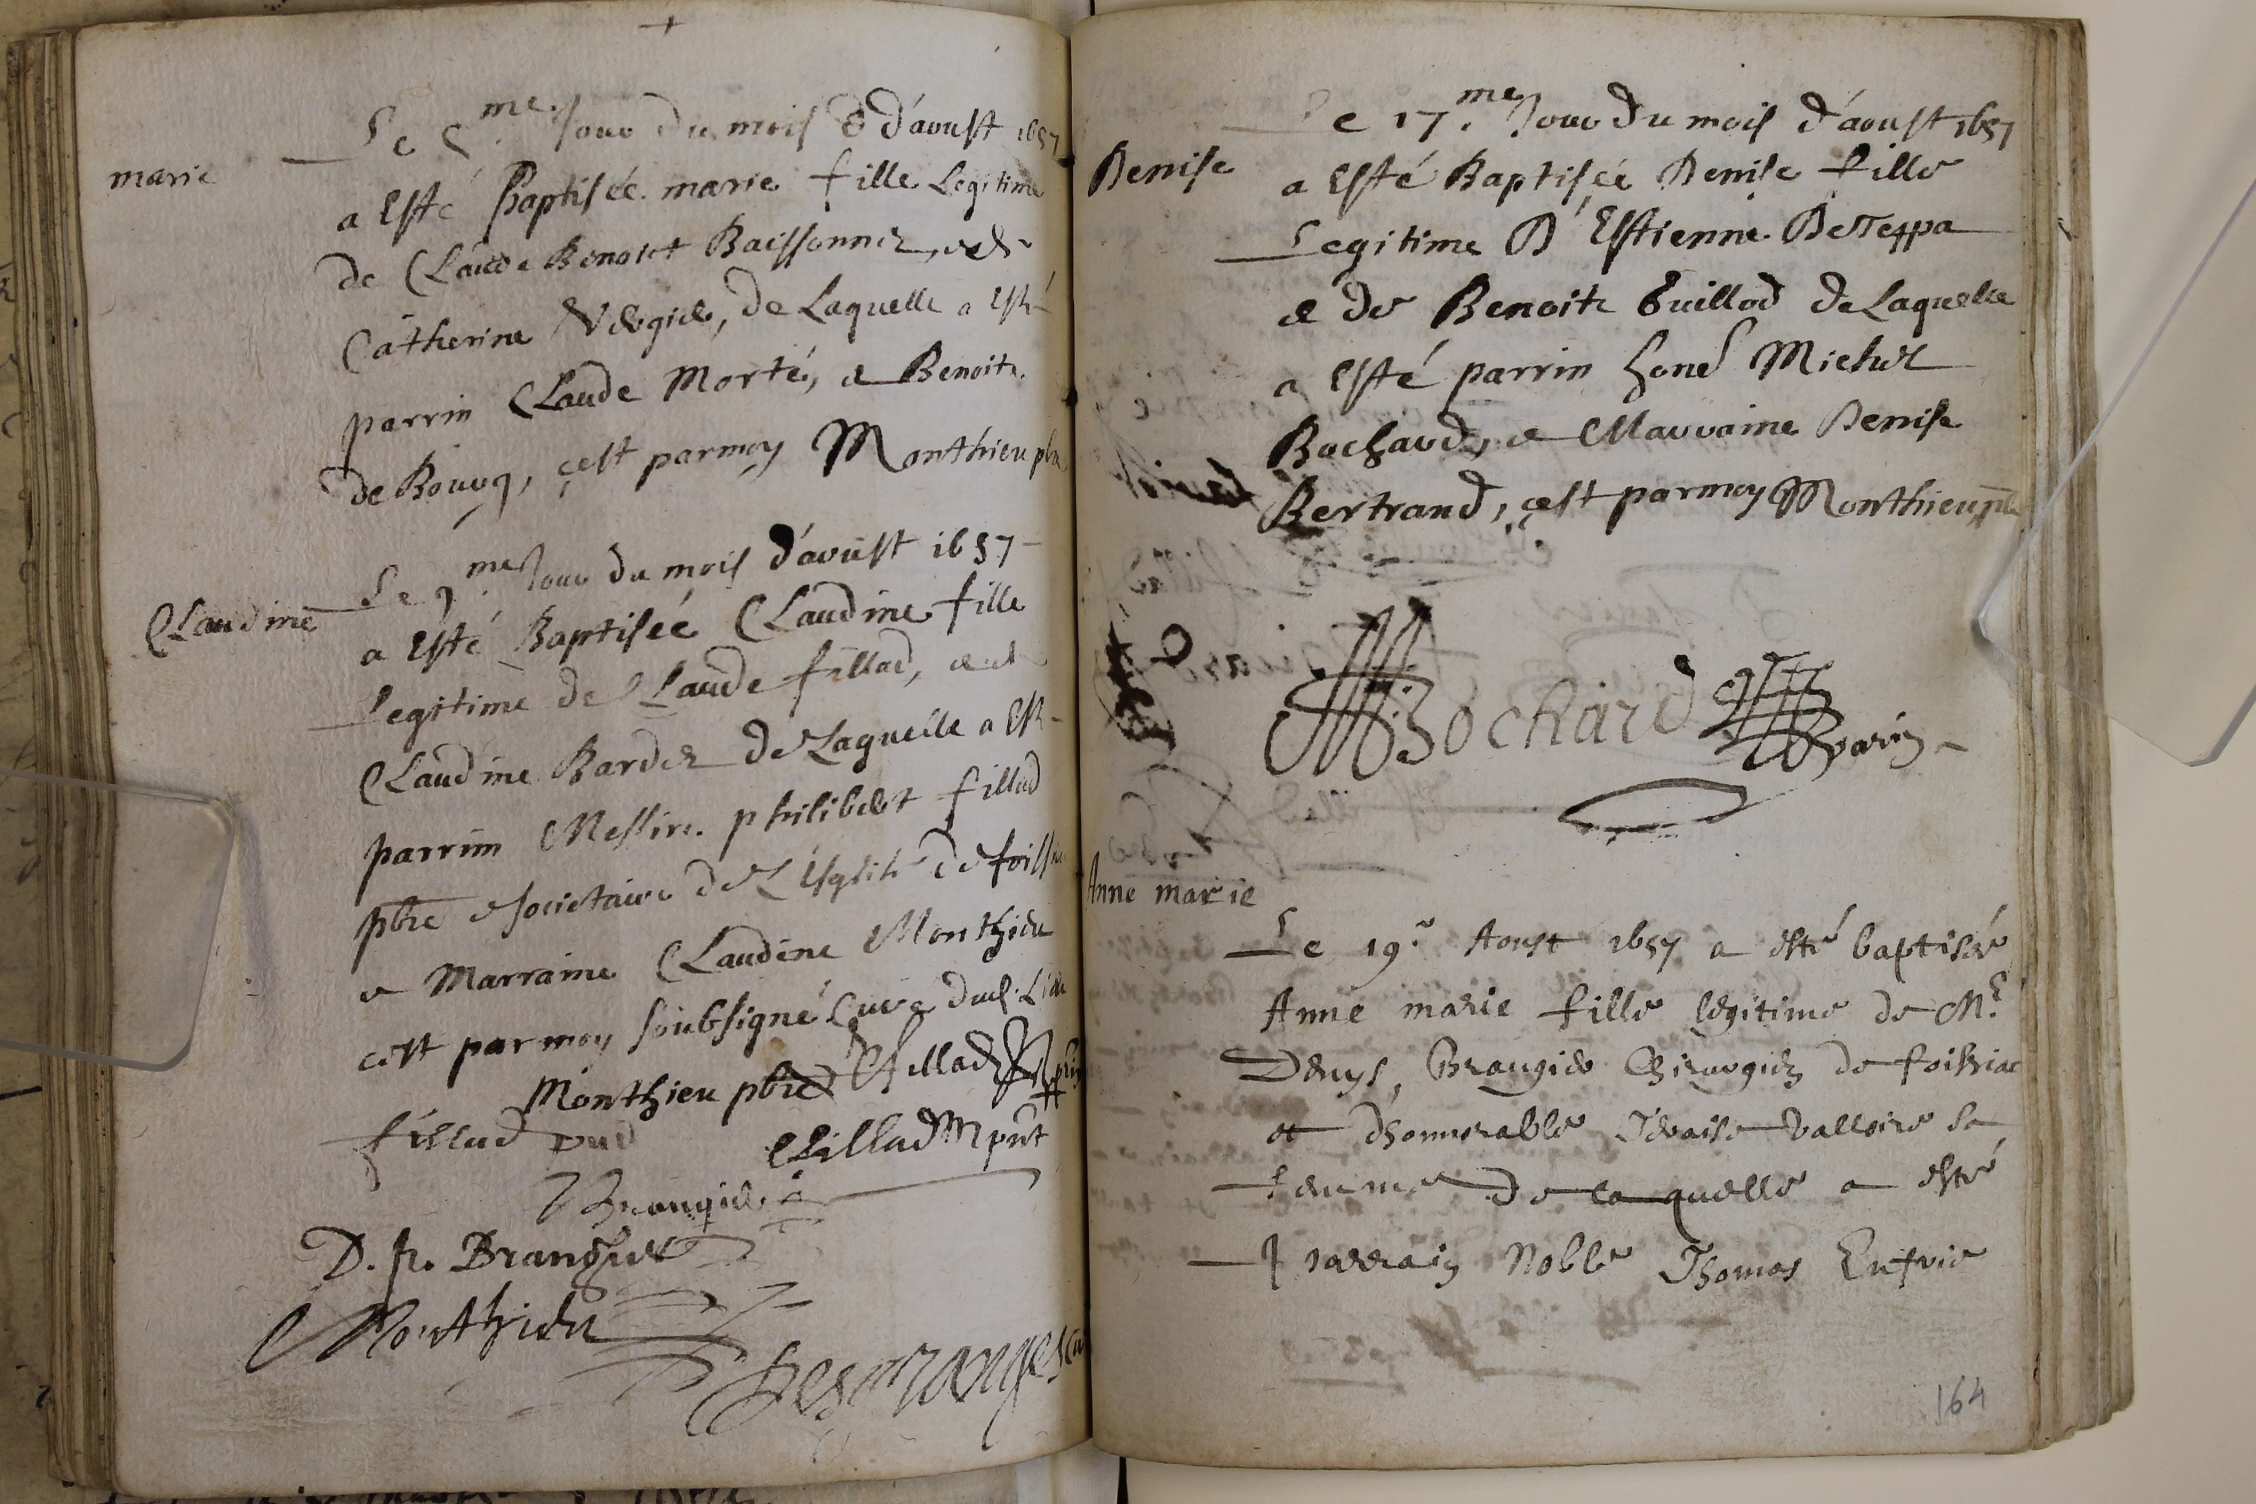 marie
Le 5.me Jour du mois d'aoust 1657
a Esté Baptisée marie fille Legitime
de Claude Benoict Baissonnet, et de
Catherine Vergier, de Laquelle a Esté
parrin Claude Morté, et Benoite
de Boucq, c'est par moy Monthieu pbre
Claudine
Le 9.me Jour du mois d'aoust 1657
a Esté Baptisée Claudine fille
Legitime de Claude fillad, et de
Claudine Bardet de Laquelle a Esté
parrim Messire philibert fillad
pbre et societaire de L'Esglise de foissia
et Marraine Claudine Monthieu
c'est par moy soubsigné Curé dud. Lieu
Monthieu pbre Pfillad prin
fillad
CfilladM pnt
Brangier
D. fr. Brangier
Monthieu
Desgranges
Denise
Le 17.me Jour du mois d'aoust 1657
a Esté Baptisée Denise fille
Legitime D'Estienne
et de Benoite Guillod de Laquelle
a Esté parrin hone Michel
Bochard, et Marraine Denise
Bertrand, c'est par moy Monthieu pbre
Bochard parin
Anne marie
Le 19.e Aoust 1657 a esté baptisée
Anne marie fille legitime de M.e
Denys Brangier Chirurgien de foissiac
et d'honnorable valloire sa
femme de laquelle a esté
parrain Noble Thomas
164